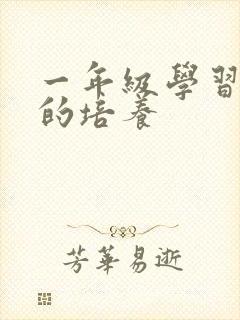 一年級學習
的培養
芳華易逝